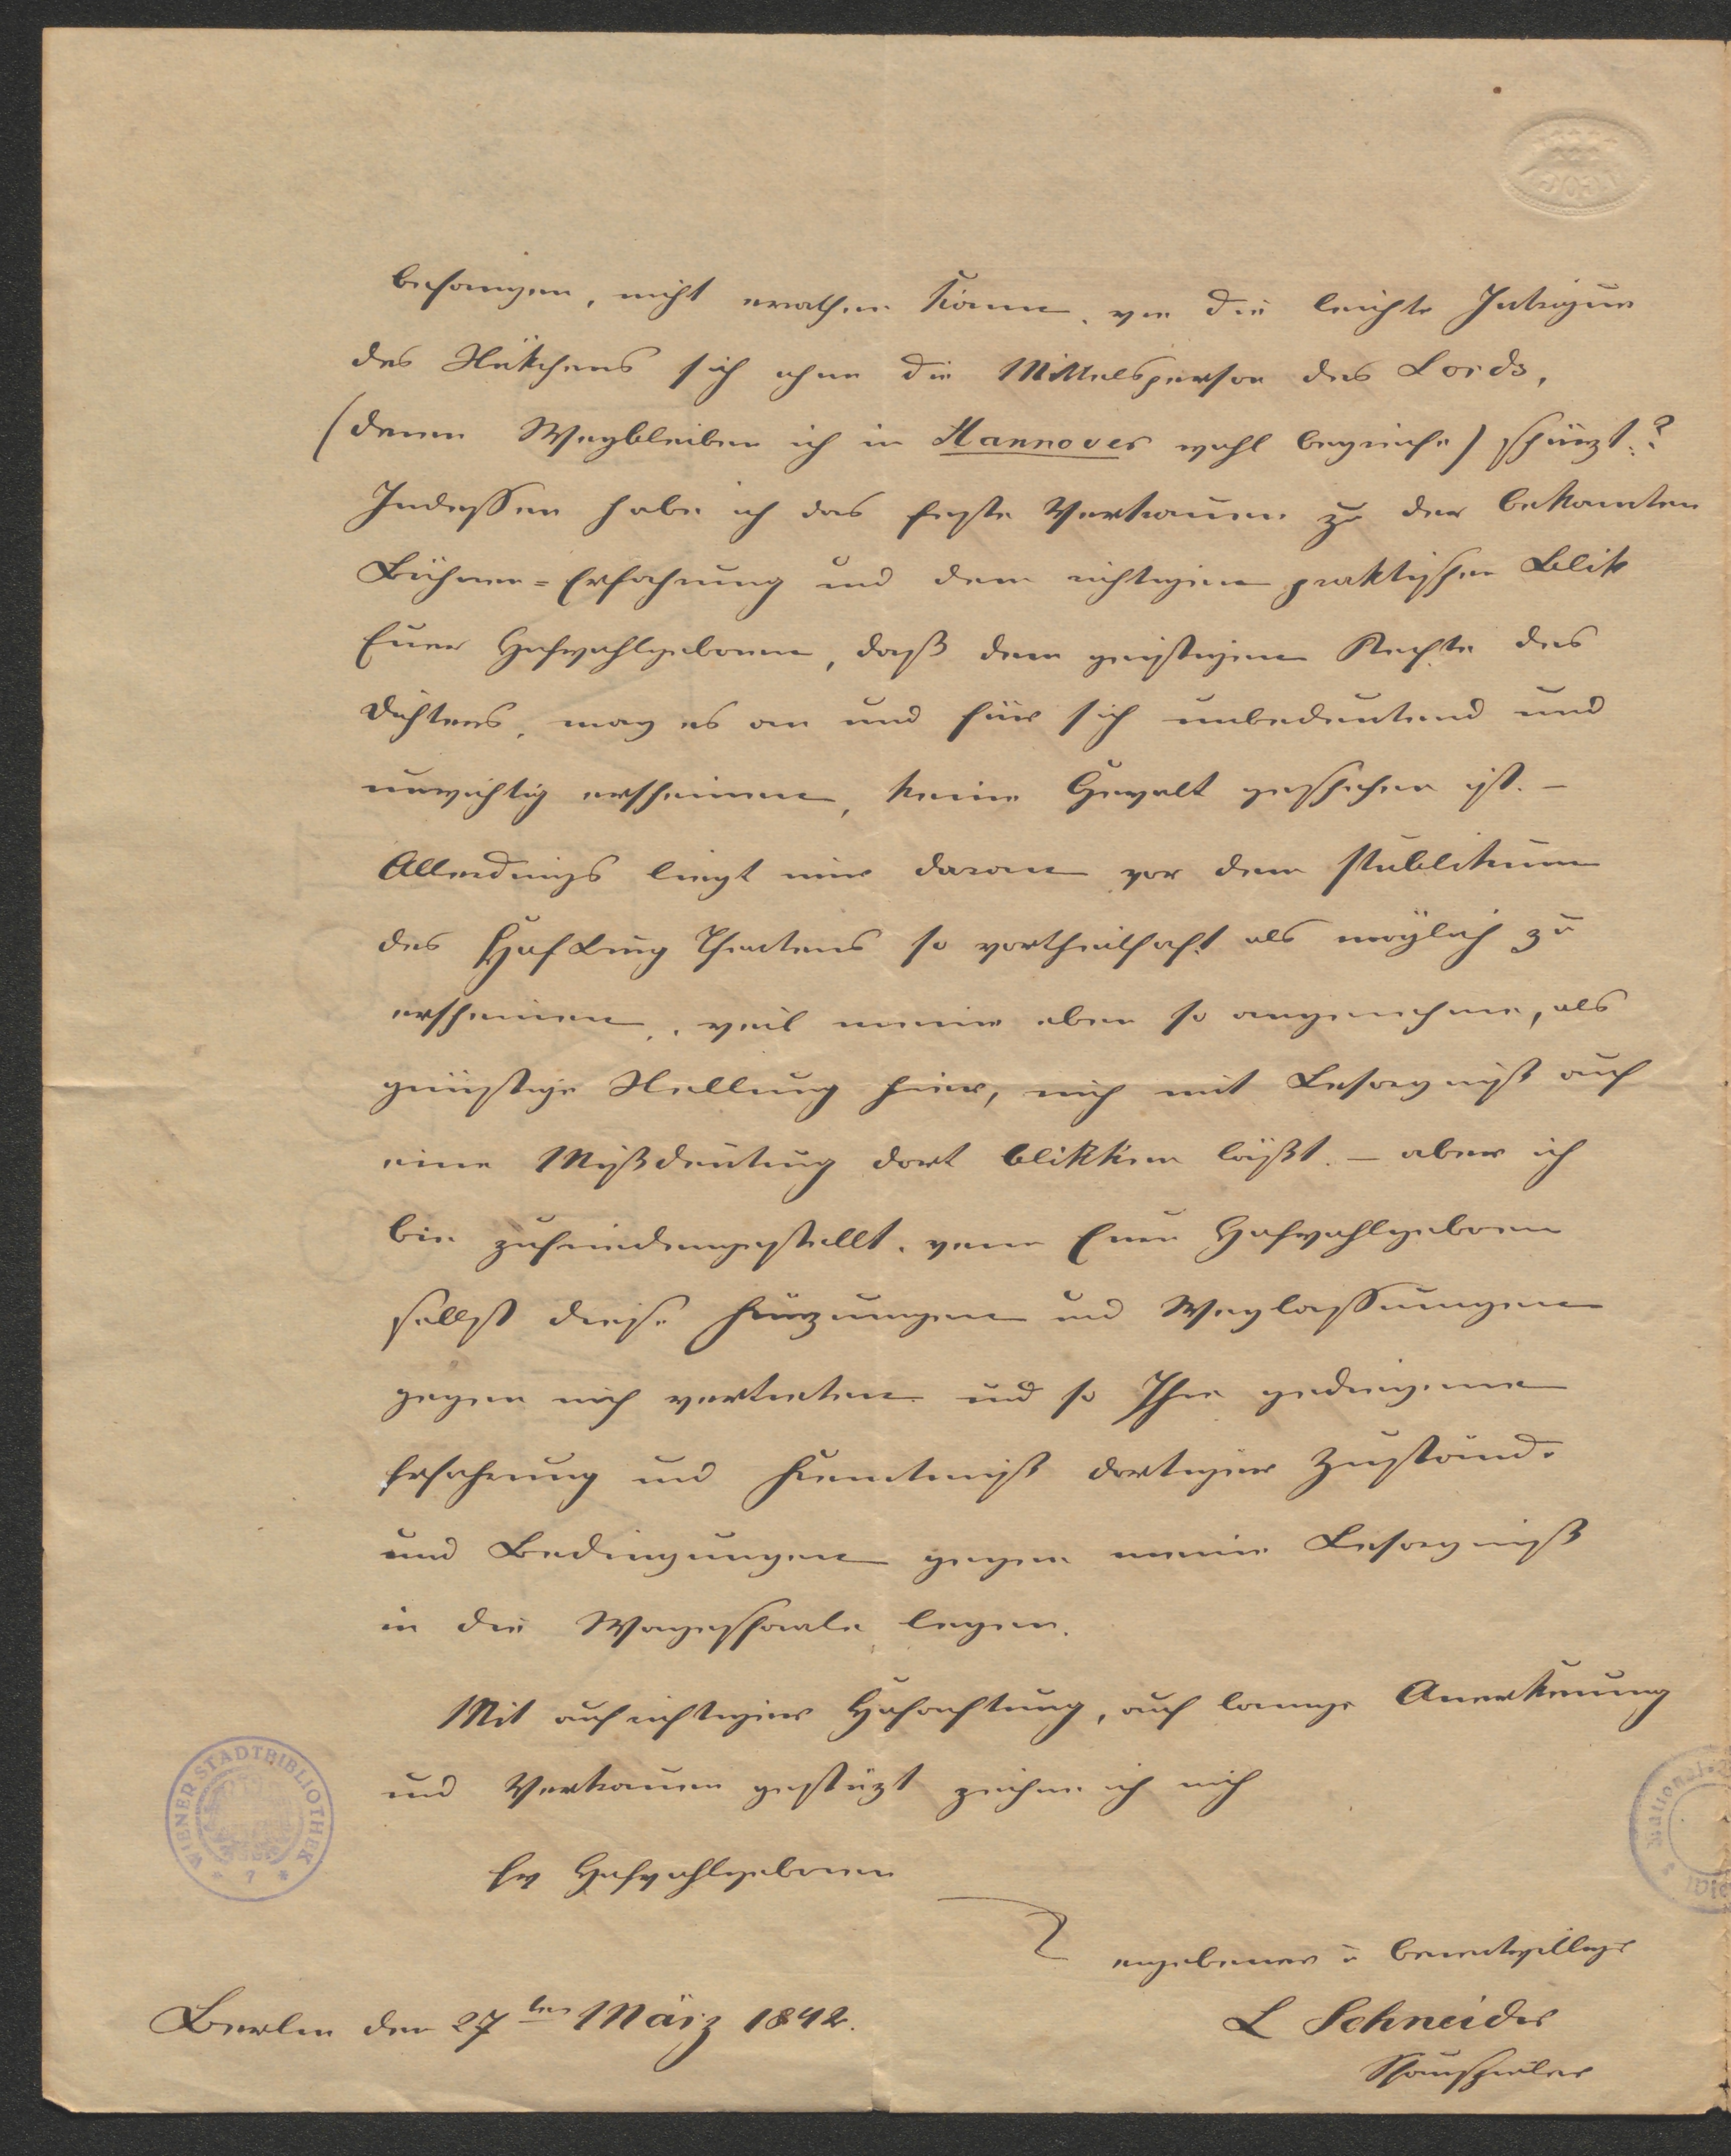 befangen, nicht errathen kann, wie die leichte Intrigue
des Stükchens sich ohne die Mittelsperson des Lords,
(deren Wegbleiben ich in Hannover wohl begreife) schürzt.?
Indessen habe ich das feste Vertrauen zu der bekannten
Bühnen=Erfahrung und dem richtigen praktischen Blik
Euer Hochwohlgeboren, daß dem geistigen Rechte des
Dichters, mag es an und für sich unbedeutend und
unwichtig erscheinen, keine Gewalt geschehen ist. –
Allerdings liegt mir daran vor dem Publikum
des Hof Burg Theaters so vortheilhaft als möglich zu
erscheinen, weil meine eben so angenehme, als
günstige Stellung hier, mich mit Besorgniß auf
eine Mißdeutung dort blikken läßt. – aber ich
bin zufriedengestellt, wenn Euer Hochwohlgeboren
selbst diese Kürzungen und Weglassungen
gegen mich vertreten und so Ihre gediegene
Erfahrung und Kenntniß dortiger Zustände
und Bedingungen gegen meine Besorgniß
in die Wageschaale legen.
Mit aufrichtiger Hochachtung, auf lange Anerkennung
und Vertrauen gestüzt zeichne ich mich
Ew Hochwohlgeboren
ergebener u bereitwilliger
Berlin den 27ten März 1842.
L Schneider
Schauspieler
WIENER STADTBIBLIOTHEK
National-
Wie